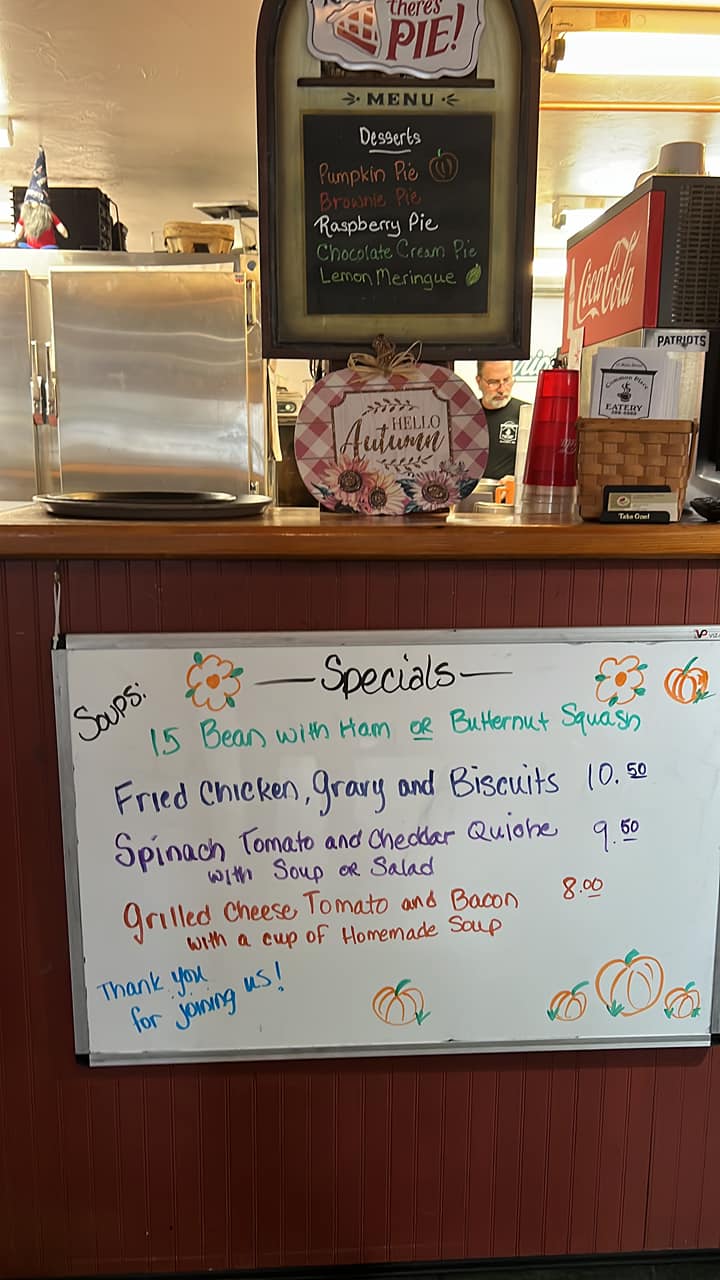 there's
PIE!
MENU
Desserts
Pumpkin Pie
Brownie Pie
Raspberry Pie
Chocolate Cream Pie
Lemon Meringue
Coca-Cola
PATRIOTS
Common Place
EATERY
HELLO
Autumn
Take One!
Specials
Soups:
15 Bean with Ham OR Butternut Squash
Fried Chicken, gravy and Biscuits 10.50
Spinach Tomato and Cheddar Quiche 9.50
with Soup OR Salad
Grilled Cheese Tomato and Bacon 8.00
with a cup of Homemade Soup
Thank you
for joining us!